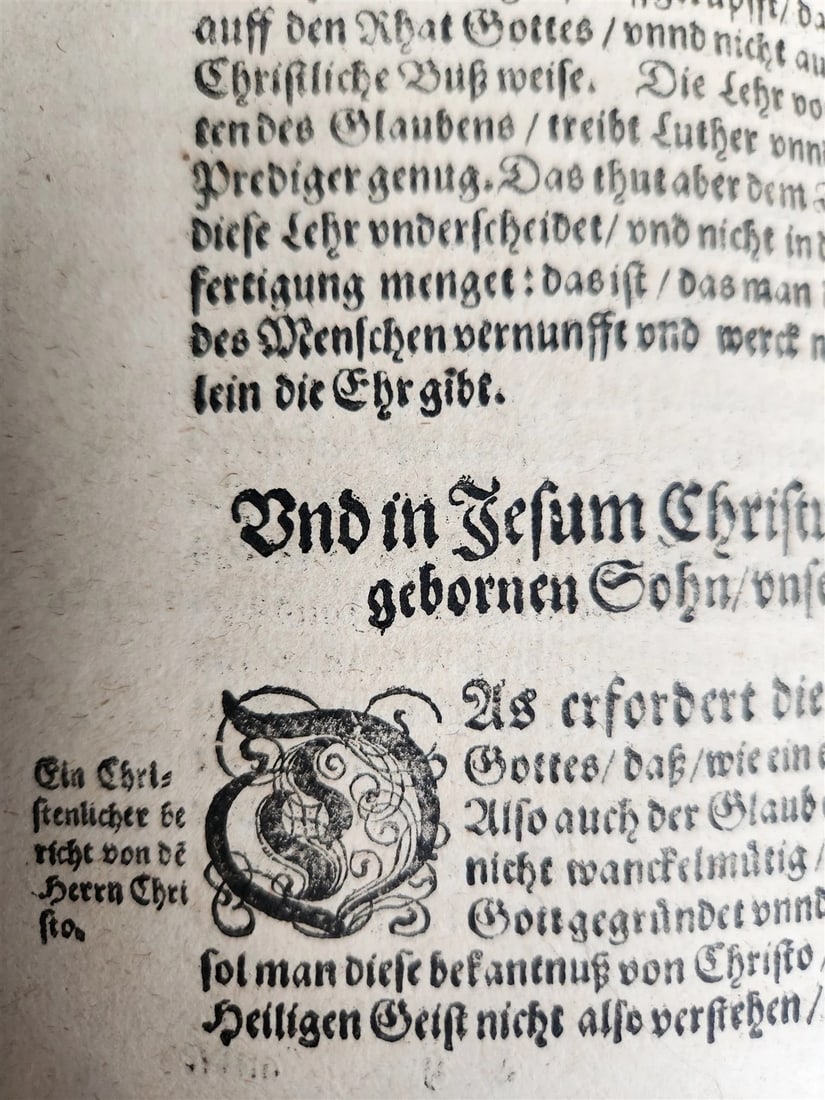 auff den Rhat Gottes / vnnd nicht au
Christliche Buß weise. Die Lehr vo
ten des Glaubens / treibt Luther vnn
Prediger genug. Das thut aber dem
diese Lehr vnderscheidet / vnd nicht in d
fertigung menget : das ist / das man
des Menschen vernunfft vnd werck n
lein die Ehr gibt.
Vnd in Jesum Christu
gebornen Sohn / vnse
DAs erfordert die
Gottes / daß / wie ein e
Also auch der Glaub
nicht wanckelmütig /
Gott gegründet vnnd
sol man diese bekantnuß von Christo /
Heiligen Geist nicht also verstehen /
Ein Chri-
stenlicher be
richt von dẽ
Herrn Chri
sto.